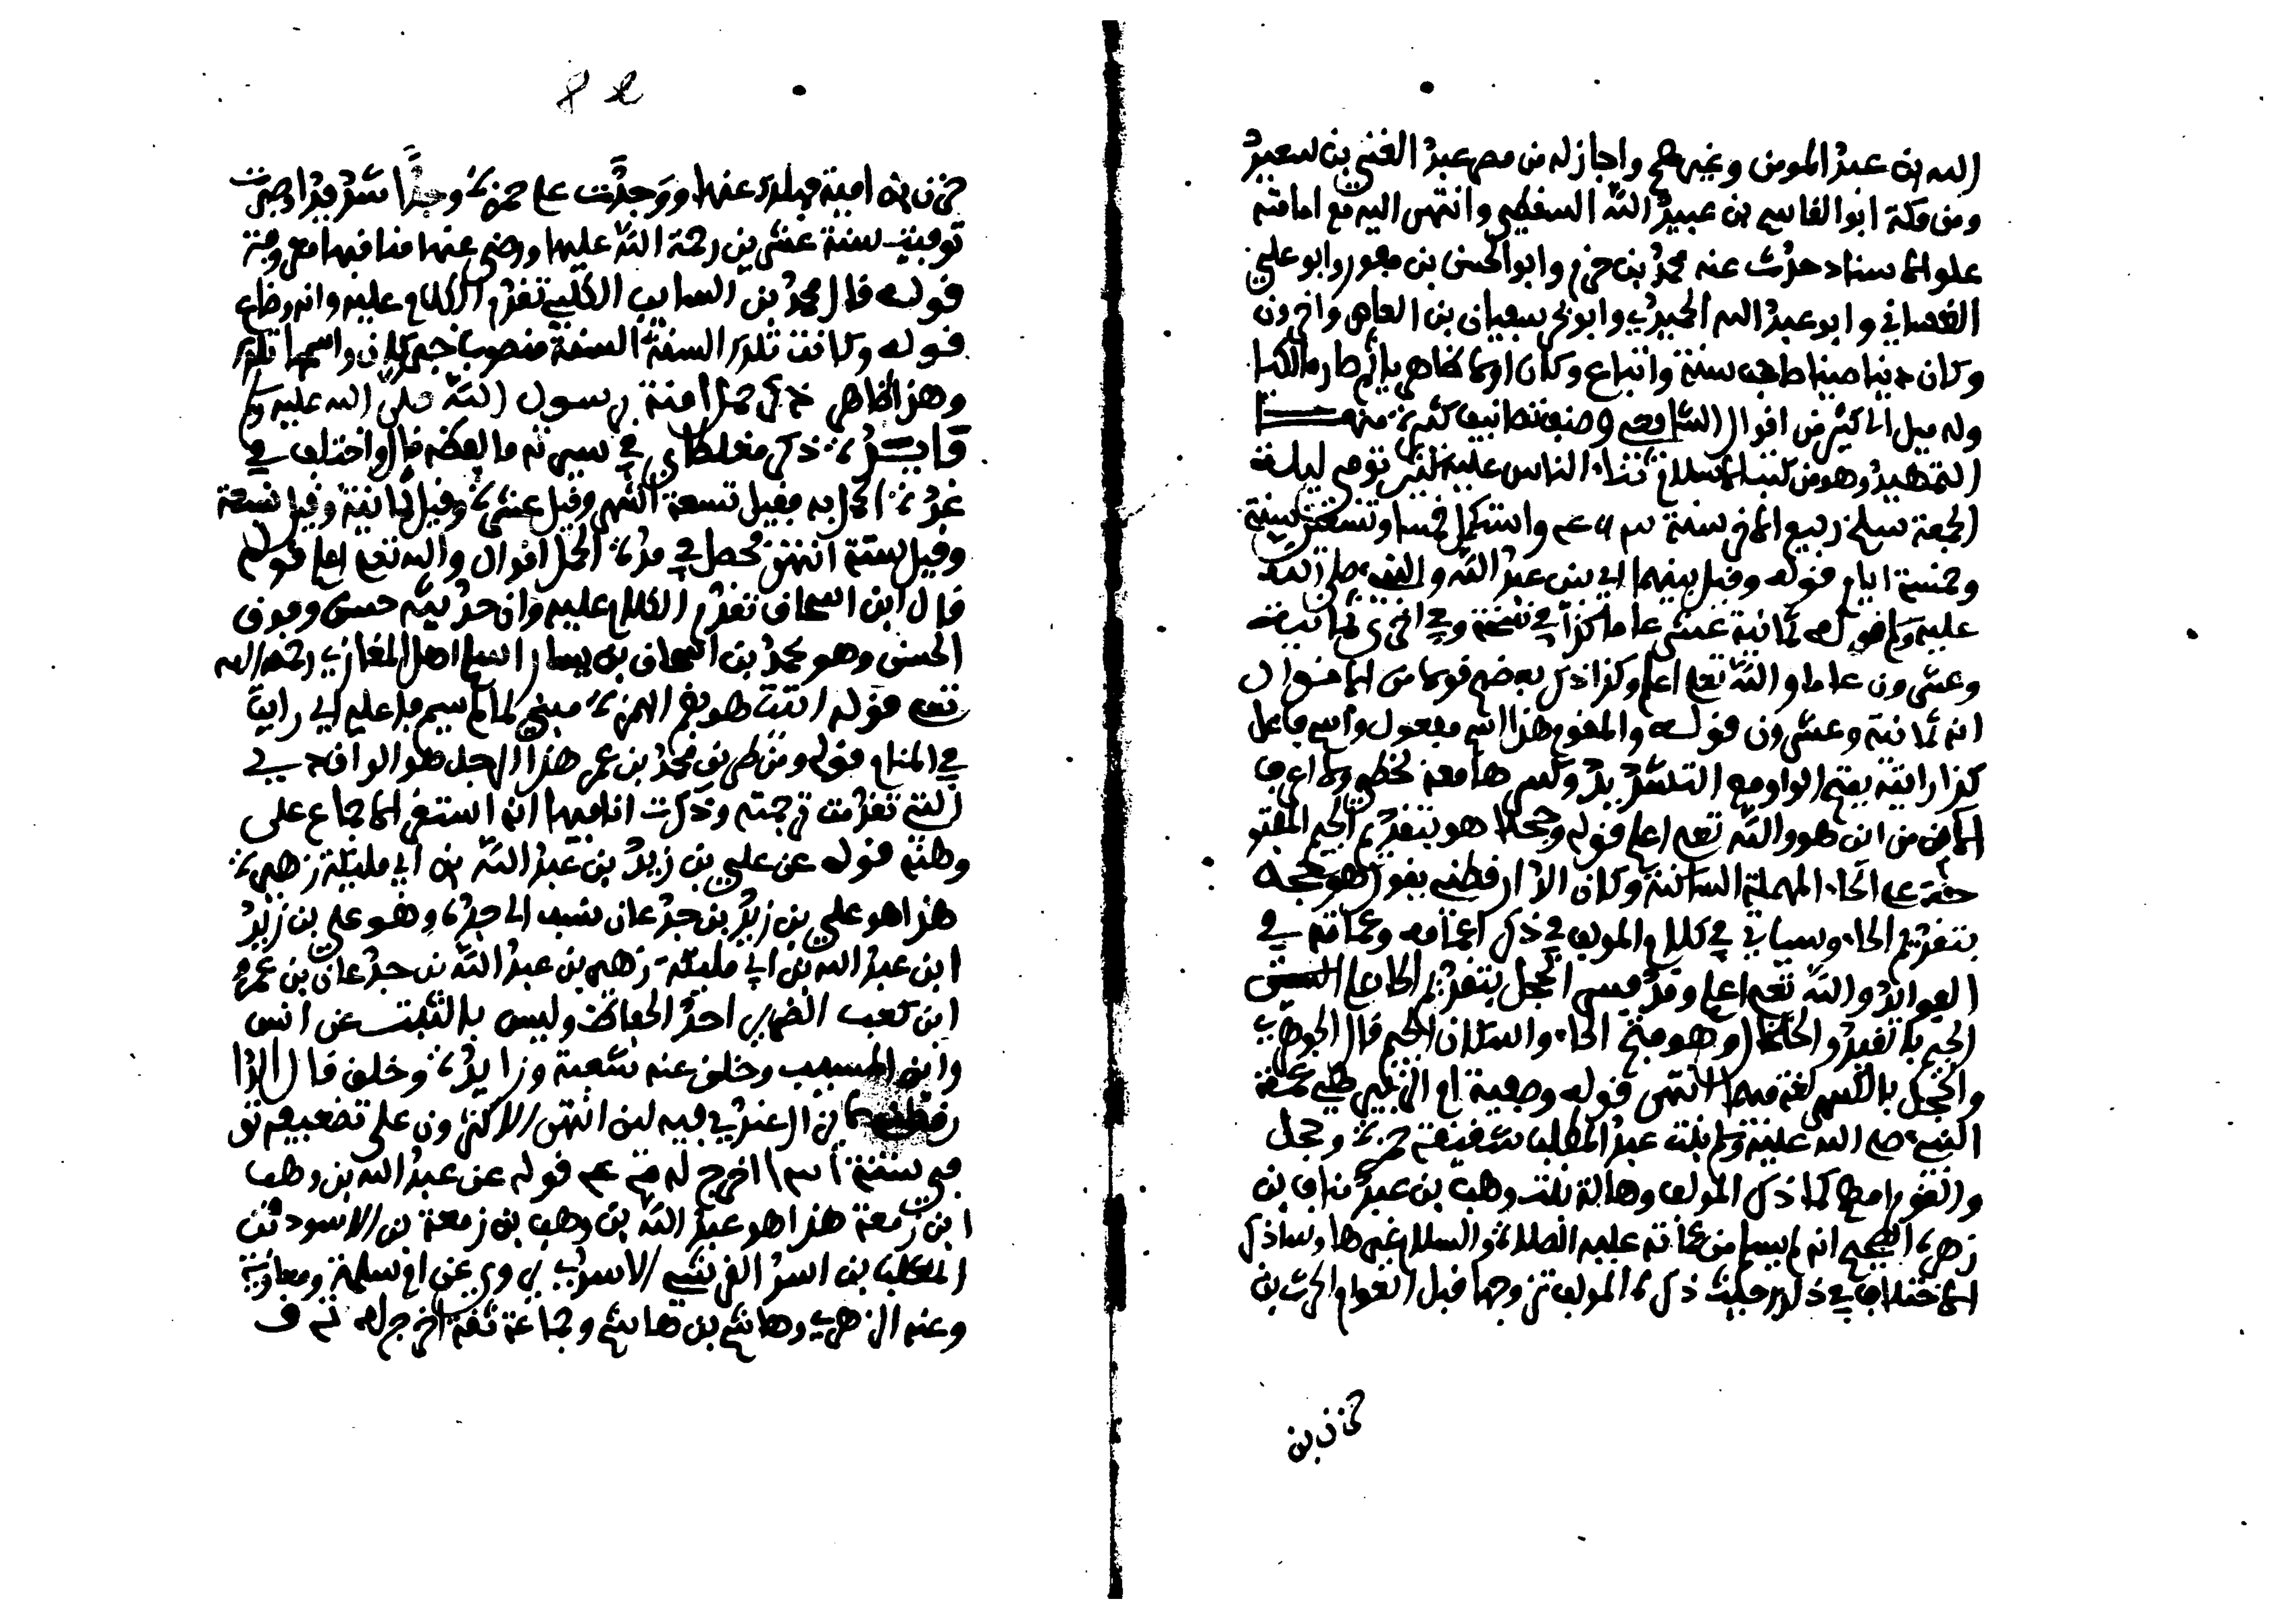 الله بن عبد المومن وغيرهم واجاز له من مصر عبد الغني بن سعيد
ومن مكة ابو القاسم بن عبيد الله السقطي وانتهى اليه مع امامته
علو الاسناد حدث عنه محمد بن حزم وابو الحسن بن مفوز وابو علي
الغساني وابو عبد الله الحميدي وابو بحر سفيان بن العاص واخرون
وكان دينا صينا صاحب سنة واتباع وكان اولا ظاهريا ثم صار مالكيا
وله ميل الى كثير من اقوال الشافعي وصنف تصانيف كثيرة منها
التمهيد وهو من كتب الاسلام الناس عليه توفي ليلة
الجمعة سلخ ربيع الاخر سنة واستكمل خمسا وتسعين سنة
وخمسة ايام قوله وقيل بينهما اي بين عبد الله والنبي صلى الله
عليه وسلم قوله ثمانية عشر عاما كذا في نسخة وفي اخرى ثمانية
وعشرون عاما والله تعالى اعلم وكذا ذكر بعضهم قولا من الاقوال
انه ثمانية وعشرون قوله والمقوم هذا اسم مفعول واسم فاعل
كذا رايته بفتح الواو مع التشديد وكسرها معه بخطي ولا اعرف
الان من اين هو والله تعالى اعلم قوله وجحلا هو بتقديم الجيم المفتو
حة على الحاء المهملة الساكنة وكان الدارقطني يقول هو حجل
بتقديم الحاء وسياتي في كلام المولف في ذكر اعمامه وعماته في
الفوائد والله تعالى اعلم وقد فسر الحجل بتقديم الحاء على
الجيم بالقيد والخلخال وهو بفتح الحاء واسكان الجيم قال الجوهري
والحجل بالكسر لغة فيهما انتهى قوله وصفية ام الزبير هي عمة
النبي صلى الله عليه وسلم بنت عبد المطلب شقيقة حمزة وحجل
والمقوم امهم كما ذكر المولف وهالة بنت وهب بن عبد مناف بن
زهرة الصحيح انه لم يسلم من عماته عليه الصلاة والسلام غيرها وساذكر
الاختلاف في ذلك حيث ذكره المولف تزوجها قبل العوام الحرث بن
حرب بن
حرب بن امية فهلك عنها ووجدت على حمزة وجدا شديدا وصبرت
توفيت سنة عشرين رحمة الله عليها ورضي عنها مناقبها معروفة
قوله قال محمد بن السايب الكلبي تقدم الكلام عليه وانه وضاع
قوله وكانت تلك السنة السنة منصوب خبر كان واسمها تلك
وهذا ظاهر ذكر حمل امنة برسول الله صلى الله عليه وسلم
فايدة ذكر مغلطاي في سيرته ما لفظه قال واختلف في
مدة الحمل به فقيل تسعة اشهر وقيل عشرة وقيل ثمانية وقيل سبعة
وقيل ستة انتهى فحصل في مدة الحمل اقوال والله تعالى اعلم قوله
قال ابن اسحاق تقدم الكلام عليه وان حديثه حسن وفوق
الحسن وهو محمد بن اسحاق بن يسار امام اهل المغازي رحمه الله
تعالى قوله اتيت هو بضم الهمزة مبني لما لم يسم فاعله اي رايت
في المنام قوله ومن طريق محمد بن عمر هذا الرجل هو الواقدي
الذي تقدمت ترجمته وذكرت انا فيها انه استقر الاجماع على
وهنه قوله عن علي بن زيد بن عبد الله بن ابي مليكة زهير
هذا هو علي بن زيد بن جدعان نسب الى جده وهو علي بن زيد
ابن عبد الله بن ابي مليكة زهير بن عبد الله بن جدعان بن عمرو
ابن كعب الضرير احد الحفاظ وليس بالثبت عن انس
وابن المسيب وخلق عنه شعبة وزايدة وخلق قال الدا
رقطني لا يزال عندي فيه لين انتهى الاكثرون على تضعيفه تو
في سنة اخرج له قوله عن عبد الله بن وهب
ابن زمعة هذا هو عبد الله بن وهب بن زمعة بن الاسود بن
المطلب بن اسد القرشي الاسدي يروي عن ام سلمة ومعاوية
وعنه الزهري وهاشم بن هاشم وجماعة ثقة اخرج له ت ق